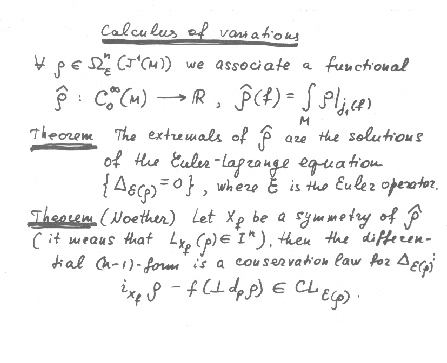 Calculus of variations
∀ ρ ∈ Ω^n_ε (J¹(M)) we associate a functional
ρ̂ : C₀^∞(M) ⟶ ℝ , ρ̂(f) = ∫_M ρ|_{j₁(f)}
Theorem The extremals of ρ̂ are the solutions
of the Euler-Lagrange equation
{Δ_{ℰ(ρ)} = 0}, where ℰ is the Euler operator.
Theorem (Noether) Let X_f be a symmetry of ρ̂
(it means that L_{X_f}(ρ) ∈ Iⁿ), then the differen-
tial (n-1)-form is a conservation law for Δ_{ℰ(ρ)}:
i_{X_f} ρ – f(⊥d_p ρ) ∈ CL_{ℰ(ρ)}.